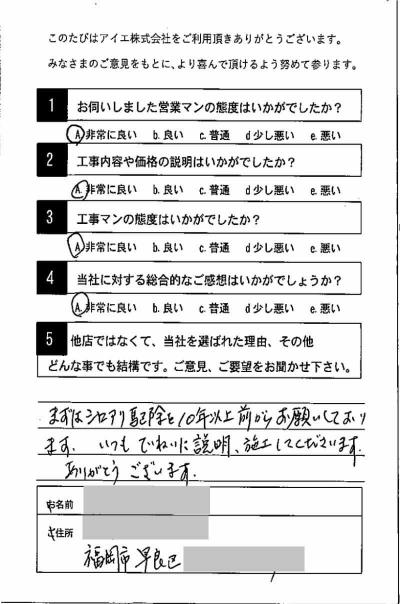 このたびはアイエ株式会社をご利用頂きありがとうございます。
みなさまのご意見をもとに、より喜んで頂けるよう努めて参ります。
1 お伺いしました営業マンの態度はいかがでしたか？
A.非常に良い b.良い c.普通 d少し悪い e.悪い
2 工事内容や価格の説明はいかがでしたか？
A.非常に良い b.良い c.普通 d少し悪い e.悪い
3 工事マンの態度はいかがでしたか？
A.非常に良い b.良い c.普通 d少し悪い e.悪い
4 当社に対する総合的なご感想はいかがでしょうか？
A.非常に良い b.良い c.普通 d少し悪い e.悪い
5 他店ではなくて、当社を選ばれた理由、その他
どんな事でも結構です。ご意見、ご要望をお聞かせ下さい。
まずはシロアリ駆除を10年以上前からお願いしており
ます。いつもていねいに説明、施工してくださいます。
ありがとうございます。
お名前
ご住所
福岡市早良区